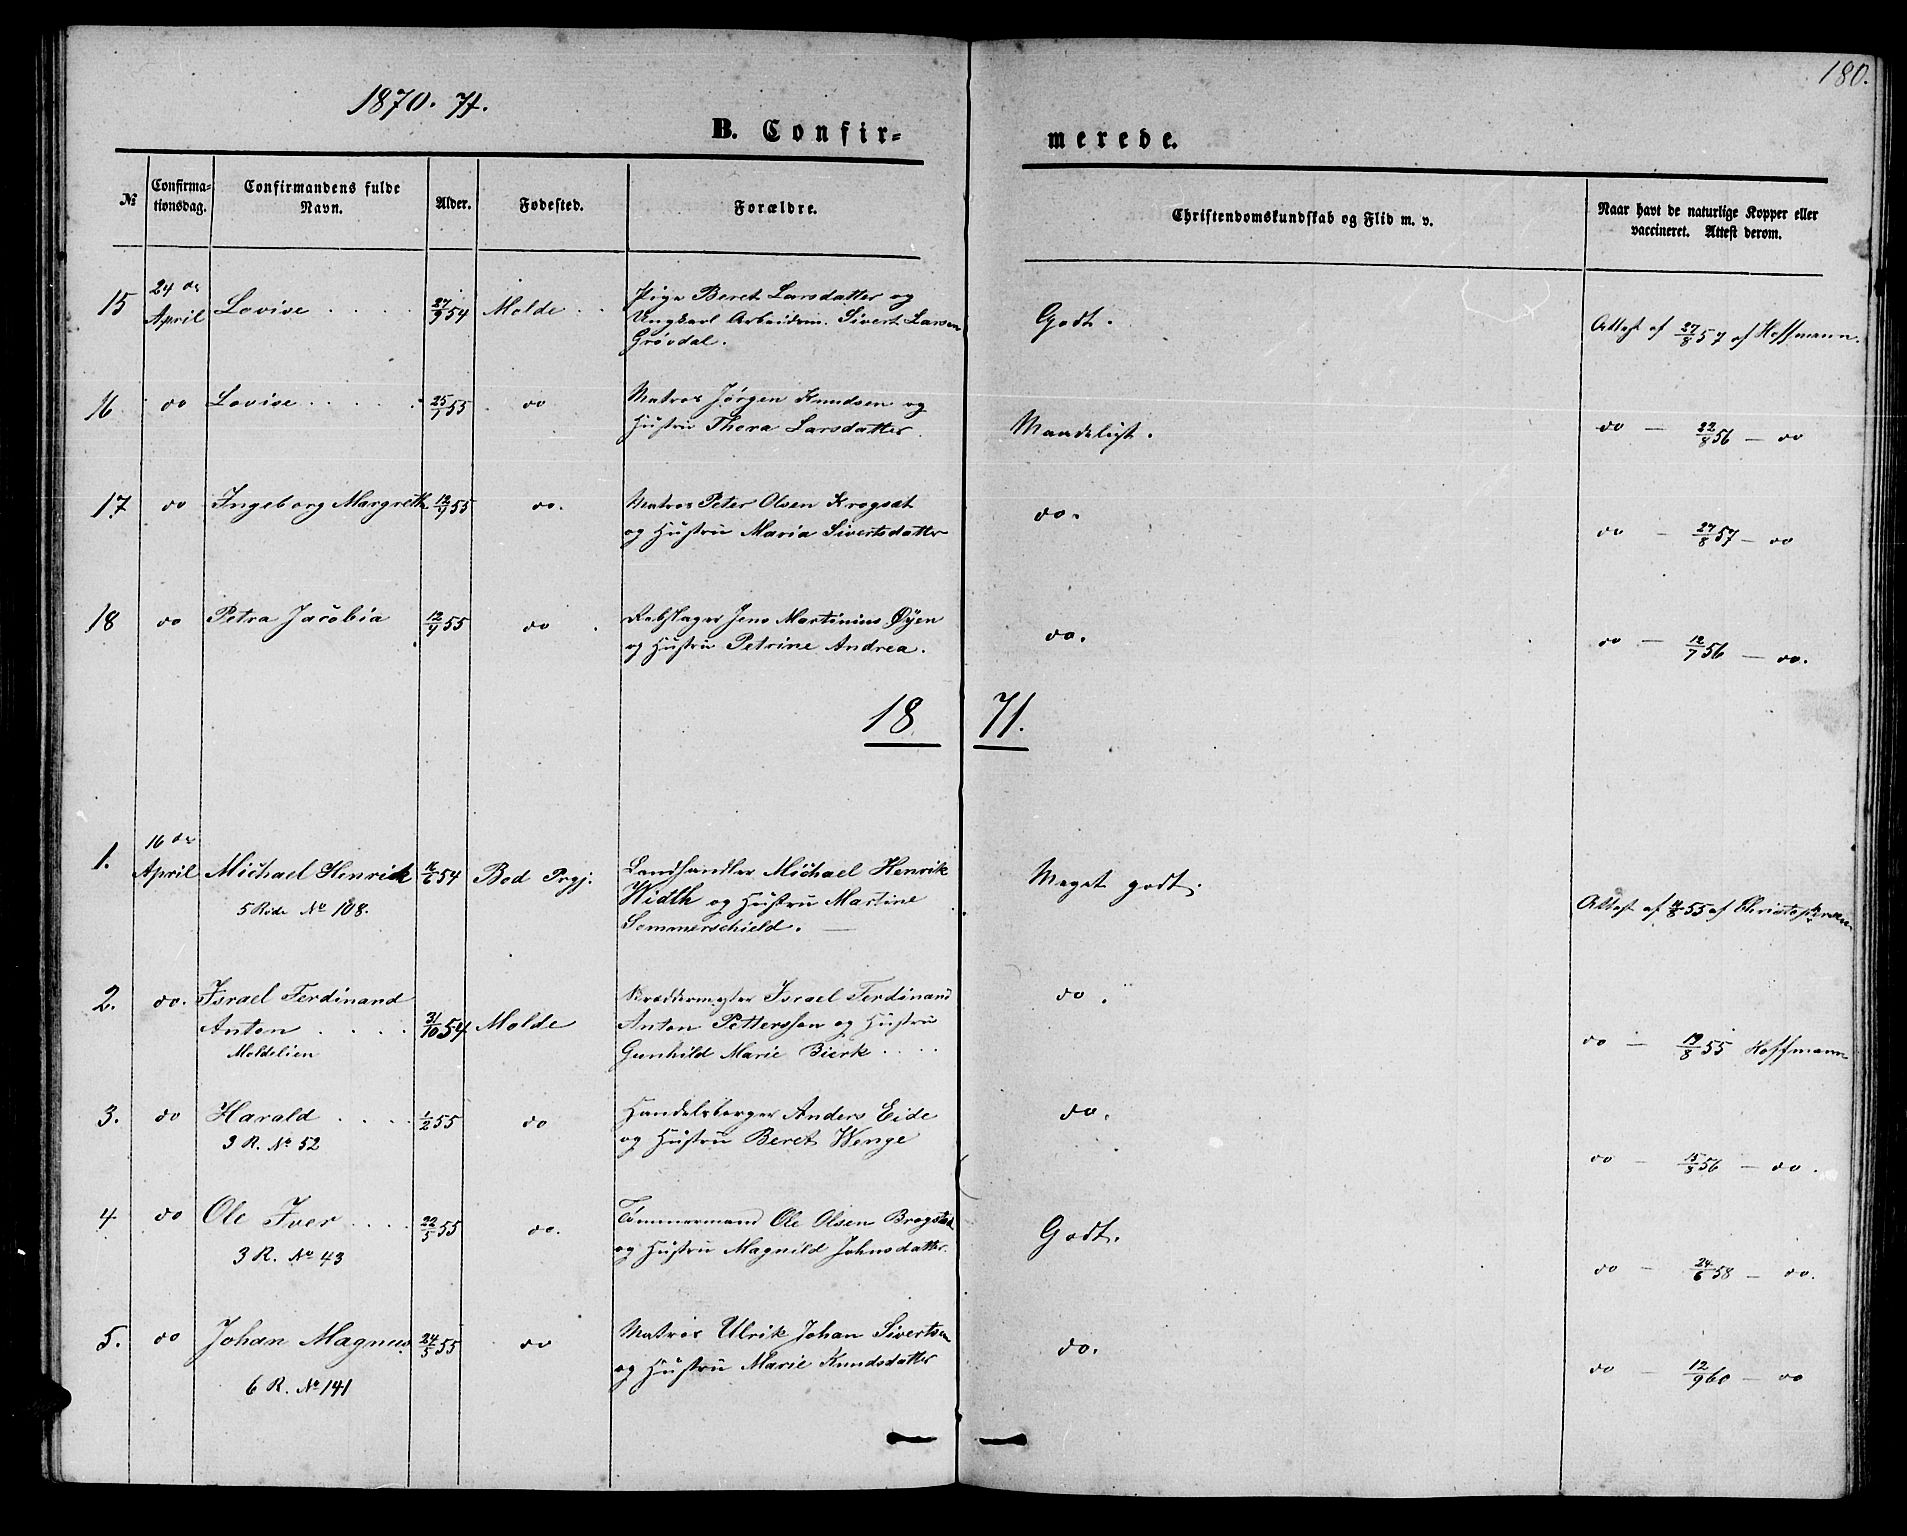 180.
1870. 71.
B. Confir-
merede.
№
Confirma-
tionsdag.
Confirmandens fulde
Navn.
Alder.
Fødested.
Forældre.
Christendomskundskab og Flid m. v.
Naar havt de naturlige Kopper eller
vaccineret. Attest derom.
15 24de April Lovise . . . . 27/9 54 Molde . . Pige Beret Larsdatter og
Ungkarl Arbeidsm. Sivert Larsen
Grøvdal.
Godt. Attest af 27/8 57 af Hoffmann.
16 do Lovise . . . . . 25/1 55 do Matros Jørgen Knudsen og
Hustru Thora Larsdatter.
Maadeligt. do — 22/8 56 — do
17. do Ingeborg Margreth. 12/9 55 do. Matros Peter Olsen Krogsæt
og Hustru Maria Sivertsdatter
do. do — 27/8 57 — do
18 do Petra Jacobia 12/9 55 do . Rebslager Jens Martinius Øyen
og Hustru Petrine Andrea.
do. do — 12/7 56 — do.
18 71.
1. 16de April Michael Henrik 11/6 54 Bod Prgj. Landhandler Michael Henrik
5 Rode No 108. Width og Hustru Martine
Sommerschield. —
Meget godt. Attest af 11/8 55 af Christophersen
2. do. Israel Ferdinand Skræddermester Israel Ferdinand
Anton . . . . 31/10 54 Molde Anton Pettersson og Hustru
Moldelien Gunhild Marie Bierk . . . .
do. do — 19/8 55 Hoffmann
3. do Harald . . . . 1/2 55 do Handelsborger Anders Eide
3 R. No 52 og Hustru Beret Wenge
do. do — 15/8 56 — do.
4. do Ole Iver . . . . 22/5 55 do. Tømmermand Ole Olsen Brogsted
3 R. No 43 og Hustru Magnild Johnsdatter.
Godt. do — 24/6 58 — do.
5. do Johan Magnus. 24/5 55 do Matros Ulrik Johan Sivertsen
6 R. No 141 og Hustru Marie Knudsdatter
do. do — 12/9 60 — do